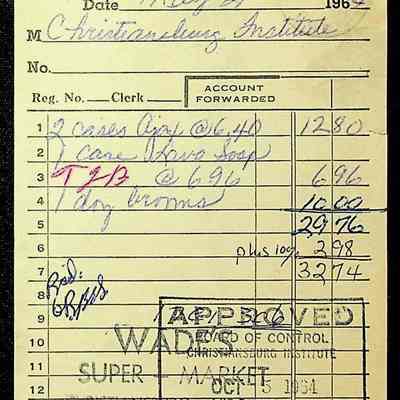 Date May 21 1964
M Christiansburg Institute
No.
Reg. No. Clerk ACCOUNT FORWARDED
1 2 cases Ajax @ 6,40 12 80
2 1 case Lava Soap
3 TJB @ 696 6 96
4 1 doz brooms 10 00
5 29 76
6 plus 10% 2 98
7 32 74
8 Rod:
9
APPROVED
10 WADE'S BOARD OF CONTROL
CHRISTIANSBURG INSTITUTE
11 SUPER - MARKET
12 OCT 5 1964